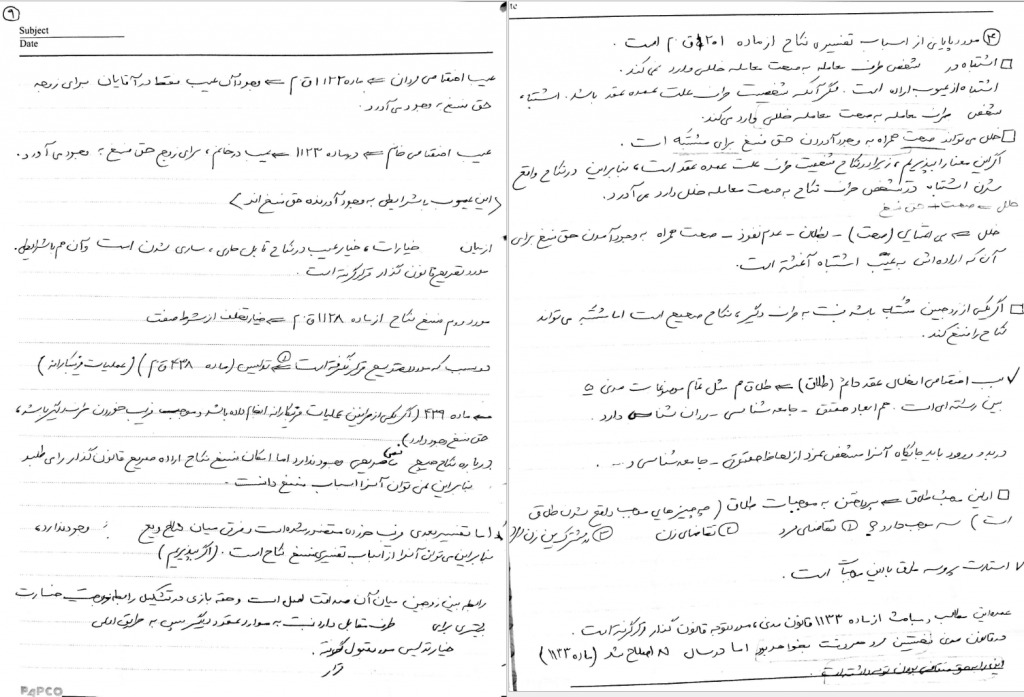 ۹
Subject
Date
عیب اختصاصی مردان ← ماده ۱۱۲۲ ق.م ← وجود آن عیب فقط در آقایان برای زوجه
حق فسخ به وجود می آورد.
عیب اختصاصی خانم ← در ماده ۱۱۲۳ ← عیب در خانم، برای زوج حق فسخ به وجود می آورد.
(این عیوب با شرایطی به وجود آورنده حق فسخ اند)
از میان خیارات، خیار عیب در نکاح قابل جاری، ساری شدن است و آن هم با شرایط.
مورد تصریح قانون گذار قرار گرفته است.
مورد دوم فسخ نکاح از ماده ۱۱۲۸ ق.م ← خیار تخلف از شرط صفت
دو سبب که مورد تصریح قرار نگرفته است ← ① تدلیس (ماده ۴۳۸ ق.م) (عملیات فریبکارانه)
← ماده ۴۳۹ (اگر یکی از طرفین عملیات فریبکارانه انجام داده باشد و موجب فریب خوردن طرف دیگر باشد،
حق فسخ وجود دارد)
درباره نکاح صحیح نص صریحی وجود ندارد اما امکان فسخ نکاح اراده صریح قانون گذار را می طلبد
بنابراین نمی توان آن را اسباب فسخ دانست.
اما تفسیر بعدی فریب خوردن متضرر شده است و فرقی میان نکاح و بیع وجود ندارد،
بنابراین می توان آن را از اسباب تفسیری فسخ نکاح است. (اگر بپذیریم)
رابطه بین زوجین میان آن صداقت اصل است و حقه بازی در تشکیل رابطه زوجیت خسارت
بیشتری برای طرف مقابل دارد نسبت به موارد عقود دیگر پس به طریق اولی
خیار تدلیس مورد قبول گرفته
قرار
PAPCO
te
④ مورد پایانی از اسباب تفسیری نکاح از ماده ۲۰۱ ق.م است.
اشتباه در شخص طرف معامله به صحت معامله خللی وارد نمی کند.
اشتباه از عیوب اراده است. مگر آنکه شخصیت طرف علت عمده عقد باشد. اشتباه
شخص طرف معامله به صحت معامله خللی وارد می کند.
خلل می تواند صحت همراه به وجود آوردن حق فسخ برای مشتبه است.
اگر این معنا را بپذیریم، زیرا در نکاح شخصیت طرف علت عمده عقد است، بنابراین در نکاح واقع
شدن اشتباه در شخص طرف نکاح به صحت معامله خللی وارد می آورد.
خلل ← صحت + حق فسخ
خلل ← بی اعتنایی (صحت) - بطلان - عدم نفوذ - صحت همراه به وجود آمدن حق فسخ برای
آن که اراده اش به عیب اشتباه آغشته است.
اگر یکی از زوجین مشتبه باشد نسبت به طرف دیگر، نکاح صحیح است اما مشتبه می تواند
نکاح را فسخ کند.
سبب اختصاصی انحلال عقد دائم (طلاق) ← طلاق هم مثل تمام موضوعات مدنی
بین رسته ای است. هم ابعاد حقوقی - جامعه شناسی - روان شناسی دارد.
در بدو ورود باید جایگاه آن را مشخص کرد از لحاظ حقوقی - جامعه شناسی و ...
اولین مبحث طلاق ← پرداختن به موجبات طلاق (چه چیزهایی موجب واقع شدن طلاق
است) سه موجب دارد ① تقاضای مرد ② تقاضای زن ③ مشترک بین زن
استارت پروسه طلاق با این موجبات است.
عمده این مطالب و مباحث از ماده ۱۱۳۳ قانون مدنی، مورد توجه قانون گذار قرار گرفته است.
در قانون مدنی نخستین مرد هر وقت بخواهد بود اما در سال ۸۱ اصلاح شد (ماده ۱۱۳۳)